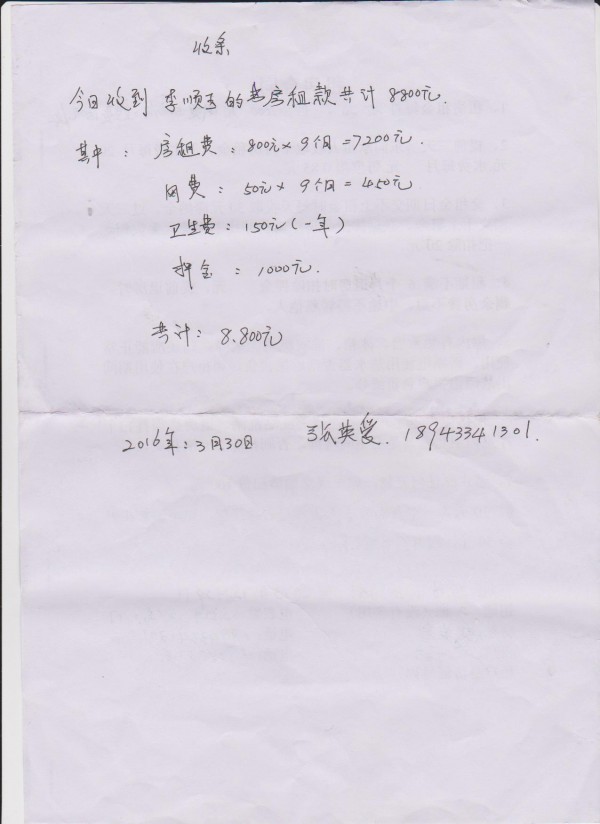 收条
今日收到 李顺玉的房租款共计8800元.
其中: 房租费: 800元×9个月=7200元.
网费: 50元×9个月=450元
卫生费: 150元(一年)
押金: 1000元.
共计: 8.800元
2016年:3月30日 张英爱. 18943341301.